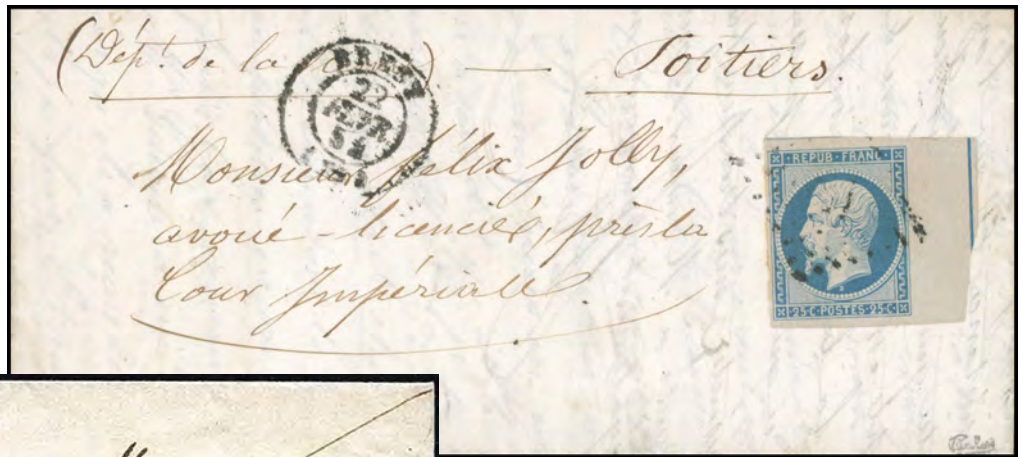 (Dép.t de la — Poitiers.
BREST
22
FEVR
54
Monsieur Félix Jolly,
avoué - licencié, près la
Cour Impériale.
REPUB·FRANC·
25·C·POSTES·25·C